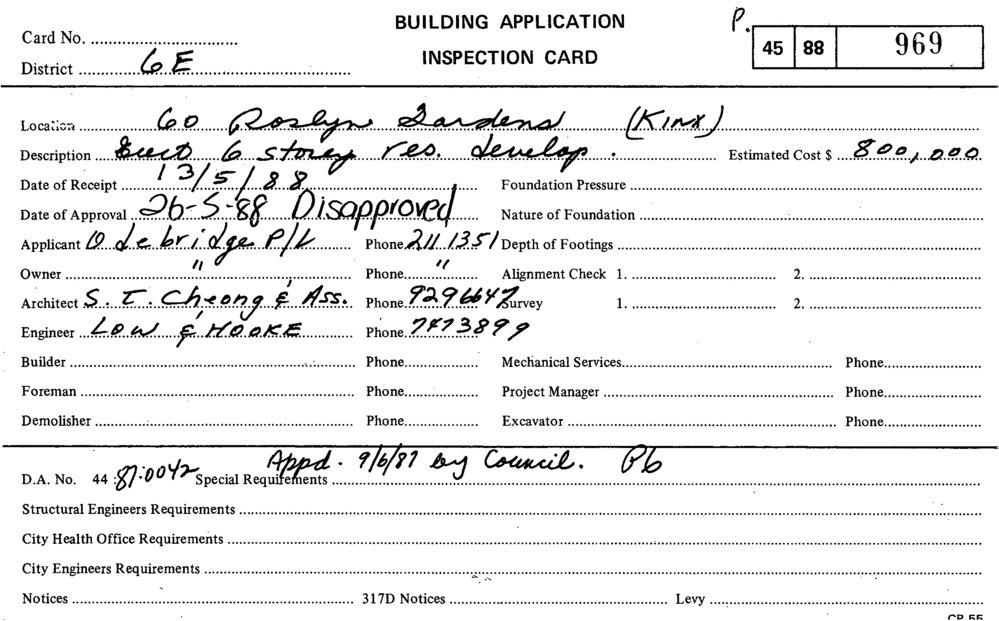 BUILDING APPLICATION
INSPECTION CARD
P.
45 88 969
Card No. ........................................
District ....6E........................................
Location ........60 Roslyn Gardens (Kinx)........................................
Description ....Erect 6 storey res. develop. .................... Estimated Cost $ ....800,000.
Date of Receipt ....13/5/88.................... Foundation Pressure ........................................
Date of Approval ..26-5-88 Disapproved.... Nature of Foundation ........................................
Applicant Odebridge P/L Phone 211 1351 Depth of Footings ........................................
Owner ............ " ............ Phone.... " .... Alignment Check 1. .................... 2. ....................
Architect S. T. Cheong & Ass. Phone 9296647 Survey 1. .................... 2. ....................
Engineer ..LOW & HOOKE.... Phone 7473899
Builder .................... Phone.................... Mechanical Services.................... Phone....................
Foreman .................... Phone.................... Project Manager .................... Phone....................
Demolisher .................... Phone.................... Excavator .................... Phone....................
Appd. 9/6/87 by Council. Pb
D.A. No. 44 :87:0042 Special Requirements ........................................
Structural Engineers Requirements ........................................
City Health Office Requirements ........................................
City Engineers Requirements ........................................
Notices .................... 317D Notices .................... Levy ....................
CP 55